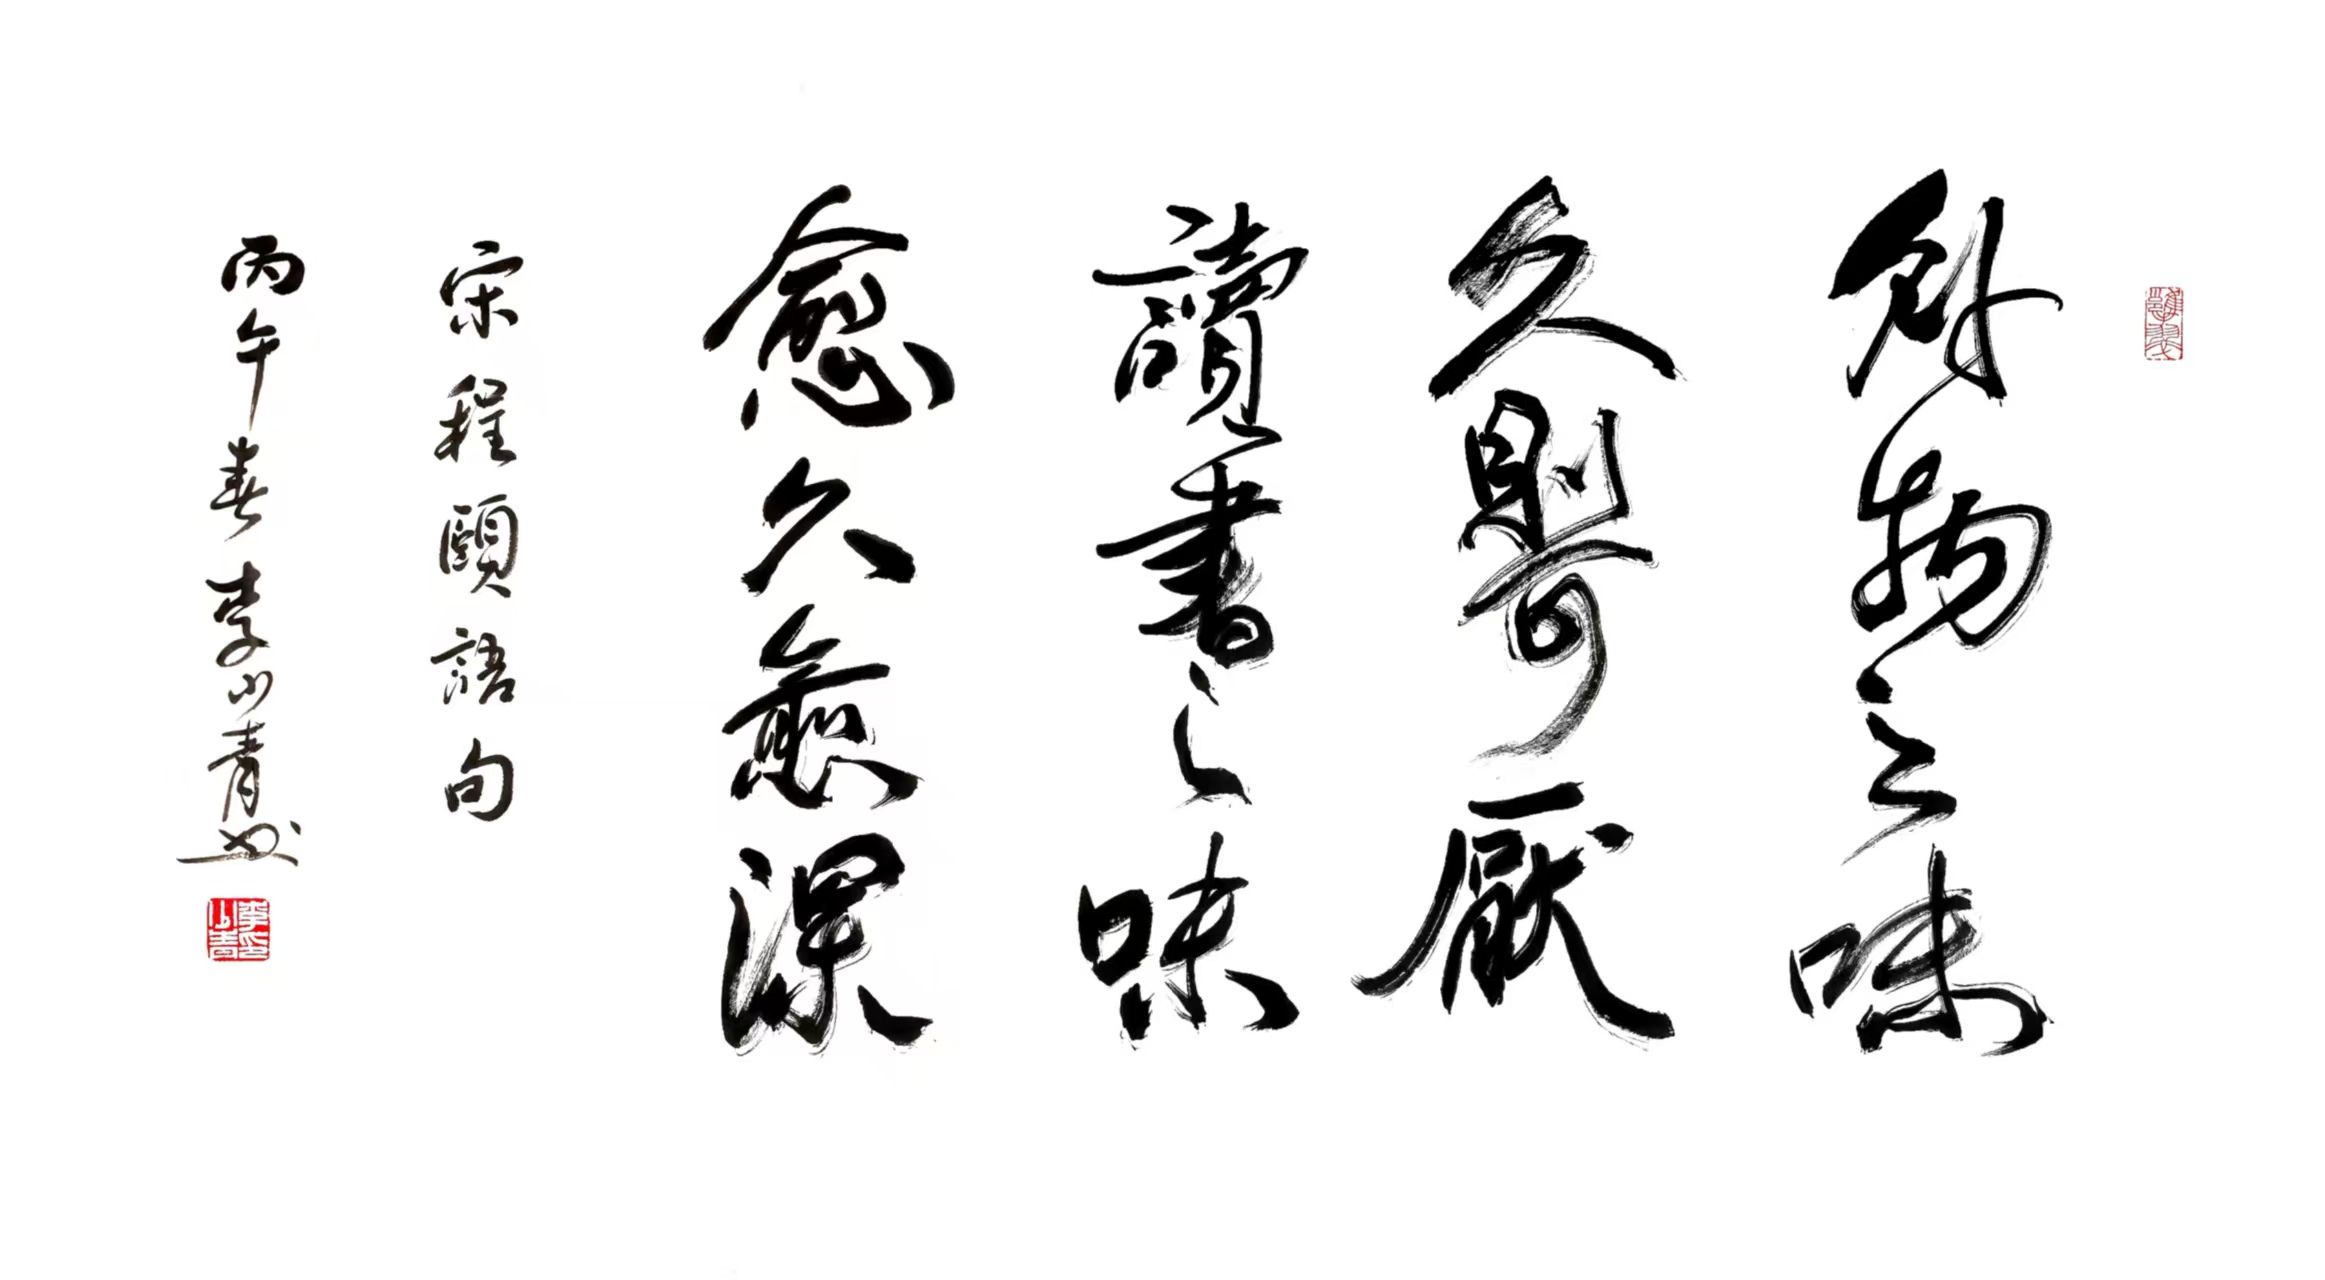 外物之味
久則可厭
讀書之味
愈久愈深
宋程頤語句
丙午春李小青書